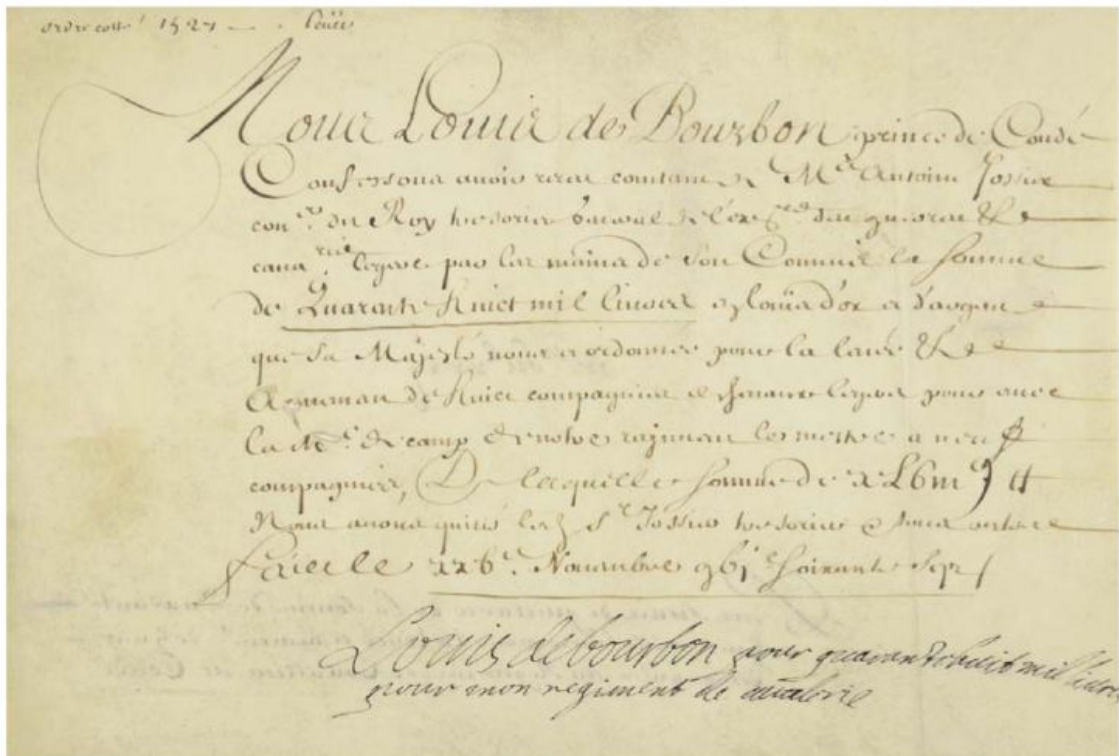 1527
Nous Louis de Bourbon prince de Condé
Confessons avoir receu comtant de Me Antoine Jossier
conr. du Roy tresorier
legere par les mains de son Commis la somme
de Quarante huict mil livres en louis d'or et d'argent
que Sa Majesté nous a ordonnée pour la levée &
Armement de huict compagnies de chevaux legers pour avec
la de camp de nostre regiment les mettre a neuf
compagnies, De laquelle somme de
Nous avons quitté led. Sr. Jossier tresorier & tous autres
Faict le Novembre soixante sept
Louis de bourbon pour quarante huit mil livres
pour mon regiment de cavalerie